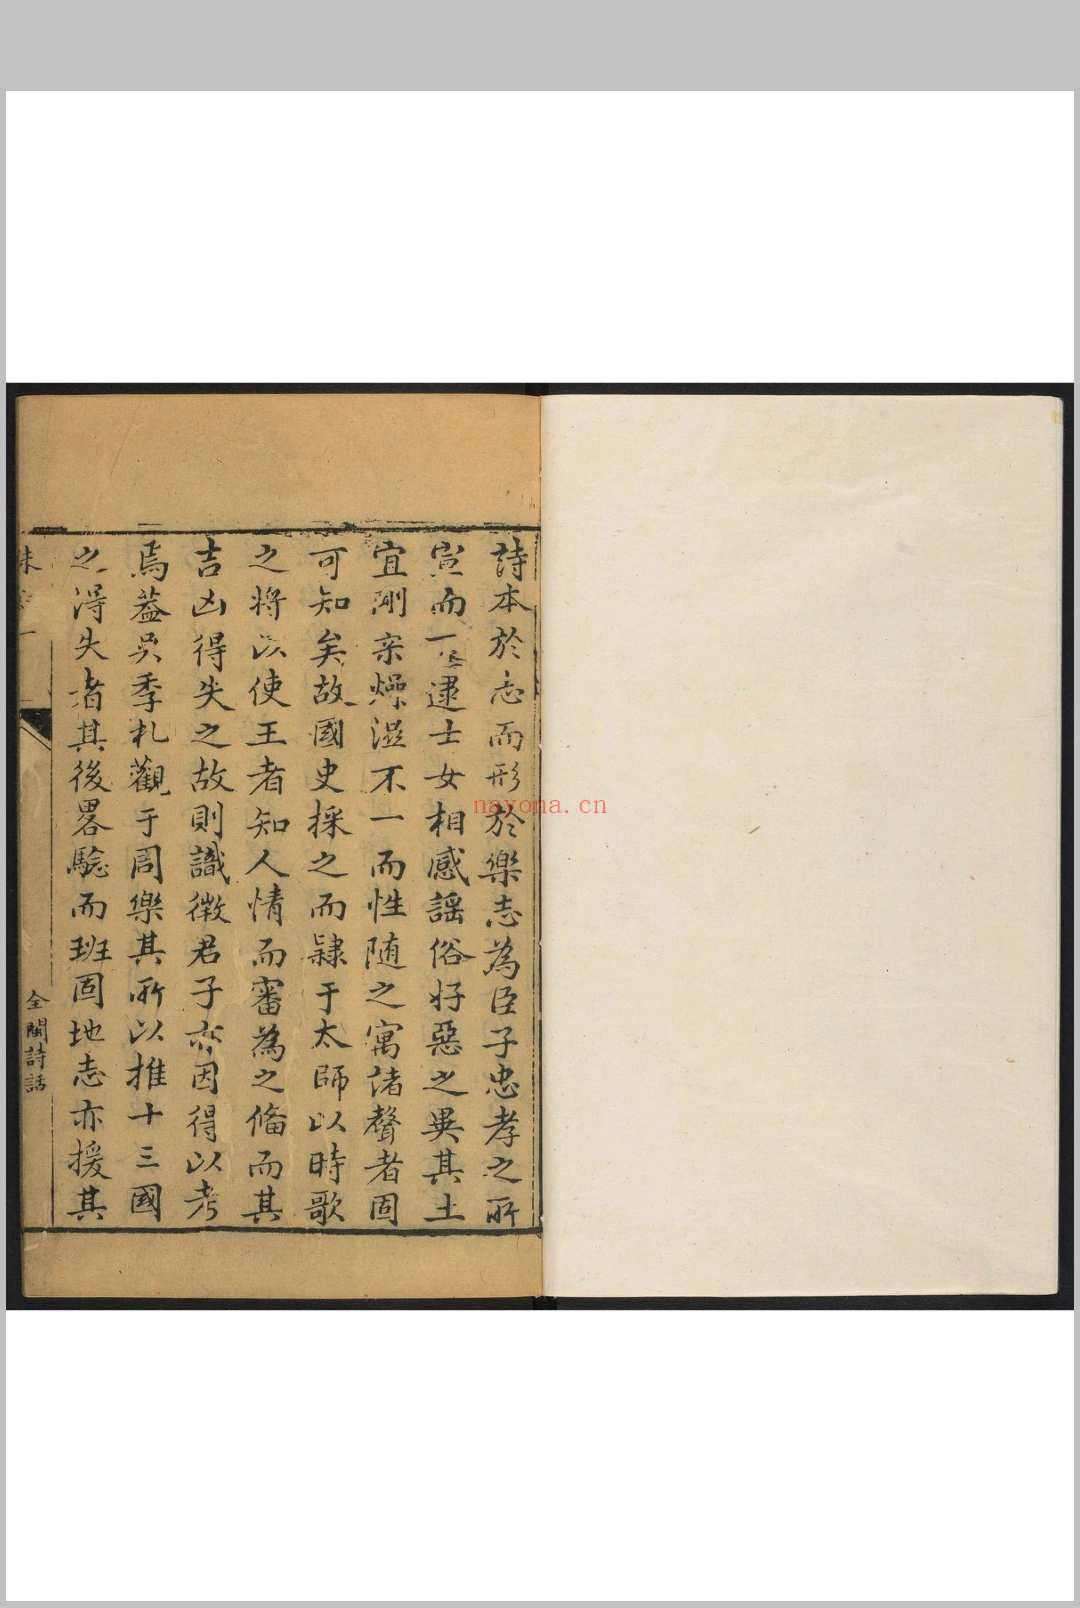 詩本於志而形於樂志為臣子忠孝之所
宣而下逮士女相感謡俗好惡之異其土
宜剛柔燥溼不一而性随之寓诸聲者固
可知矣故國史採之而隷于太師以時歌
之将以使王者知人情而審為之俻而其
吉凶得失之故則識微君子亦因得以考
焉葢吳季札觀于周樂其所以推十三國
之得失者其後畧驗而班固地志亦援其
全閩詩話
nayona.cn